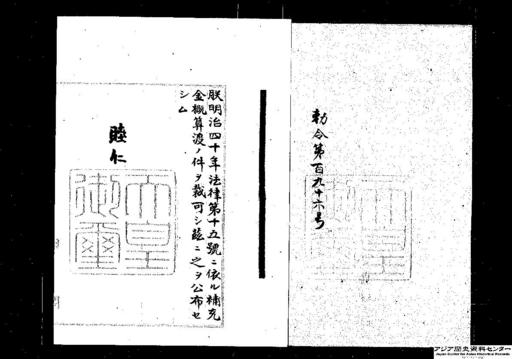 勅令第百九十六号
朕明治四十年法律第十五號ニ依ル補充
金概算渡ノ件ヲ裁可シ茲ニ之ヲ公布セ
シム
睦仁
天皇
御璽
アジア歴史資料センター
Japan Center for Asian Historical Records